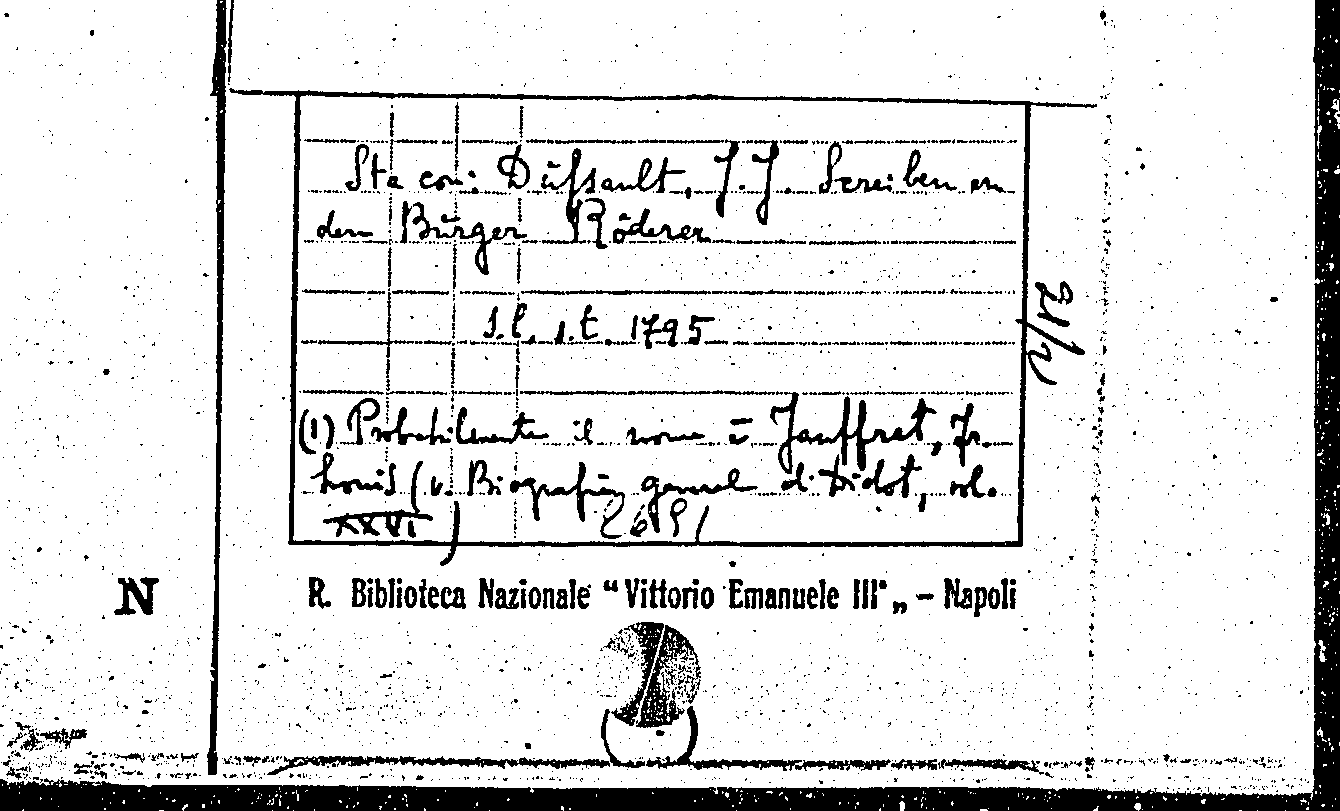 Sta con: Düssault, J. J. Screiben an
den Bürger Röderer
S. l., s. t. 1795
(1) Probabilmente il nome è Jauffret, Fr.
Louis (v. Biografia general di Didot, vol.
XXVI)
R. Biblioteca Nazionale “Vittorio Emanuele III„ - Napoli
N